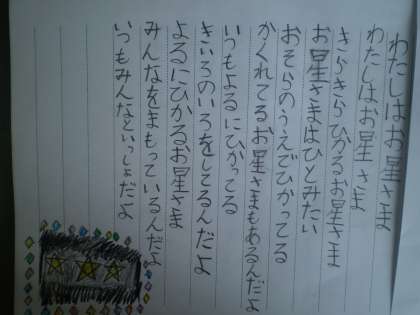 わたしはお星さま
わたしはお星さま
きらきらひかるお星さま
お星さまはひとみたい
おそらのうえでひかってる
かくれてるお星さまもあるんだよ
いつもよるにひかってる
きいろのいろをしてるんだよ
よるにひかるお星さま
みんなをまもっているんだよ
いつもみんなといっしょだよ